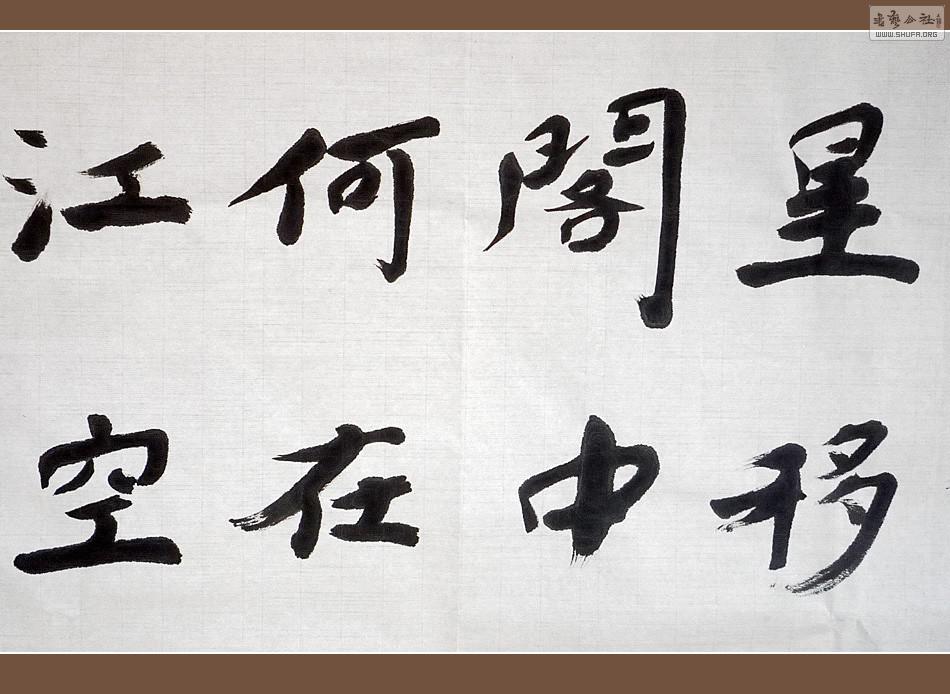 星移
閣中
何在
江空
WWW.SHUFA.ORG